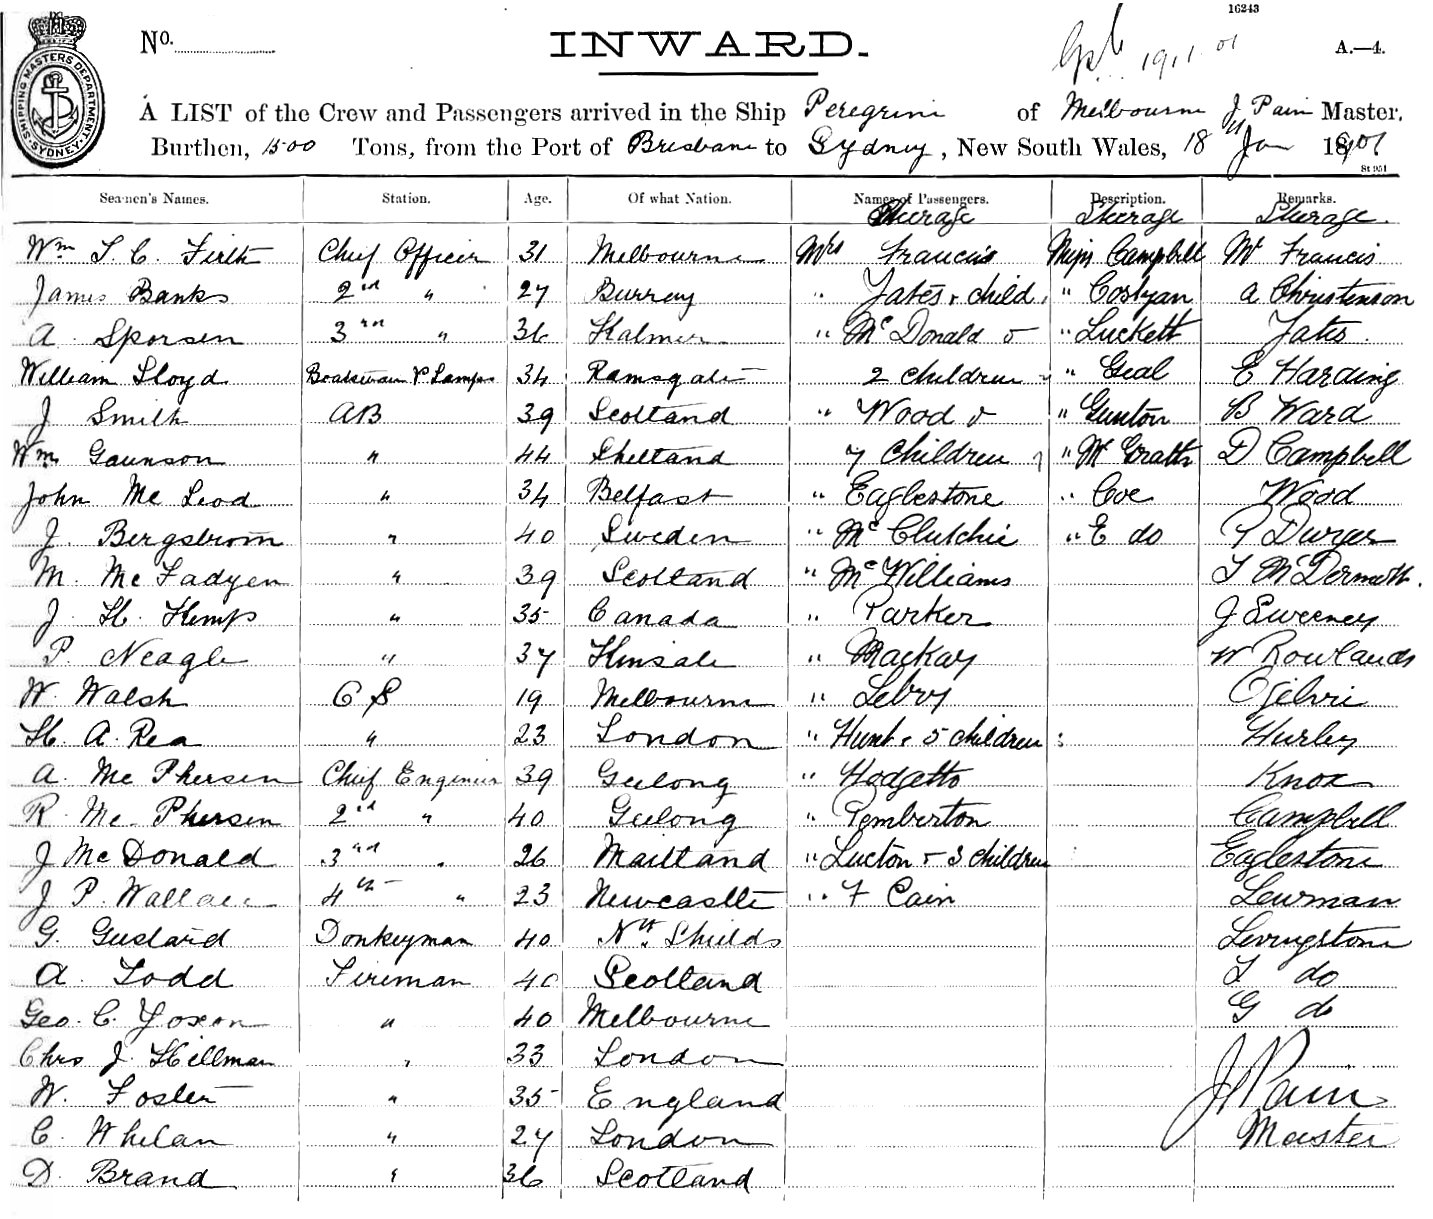 16243
No. INWARD. 19.1.01 A.—4.
SHIPPING MASTERS DEPARTMENT SYDNEY
A LIST of the Crew and Passengers arrived in the Ship Peregrine of Melbourne J Pain Master,
Burthen, 1500 Tons, from the Port of Brisbane to Sydney, New South Wales, 18th Jan 1901
St 951
Seamen's Names. Station. Age. Of what Nation. Names of Passengers. Description. Remarks.
Steerage Steerage Steerage.
Wm T. C. Firth Chief Officer 31 Melbourne Mrs Francis Miss Campbell Mr Francis
James Banks 2nd " 27 Burray " Yates & child " Costyan A Christenson
A. Sporsen 3rd " 36 Kalmer " McDonald & " Luckett Yates.
William Lloyd Boatswain & Lamps 34 Ramsgate 2 children " Geal E Harding
J Smith AB 39 Scotland " Wood & " Gunton B Ward
Wm Gaunson " 44 Shetland 7 children " McGrath D Campbell
John McLeod " 34 Belfast " Eaglestone " Coe Wood
J. Bergstrom " 40 Sweden " McClutchie " E do P Dwyer
M. McFadyen " 39 Scotland " McWilliams T McDermott.
J. H. Kemps " 35 Canada " Parker J Sweeney
P. Neagle " 37 Kinsale " Mackay W Rowlands
W. Walsh OS 19 Melbourne " Lebry Ogilvie
H. A. Rea " 23 London " Hunt & 5 children Hurley
A. McPhersen Chief Engineer 39 Geelong " Hodgetts Knox
R. McPhersen 2nd " 40 Geelong " Pemberton Campbell
J McDonald 3rd " 26 Maitland " Lucton & 3 children Eaglestone
J P. Wallace 4th " 23 Newcastle " F Cain Lewman
G. Gustard Donkeyman 40 Nth Shields Levingstone
A. Todd Fireman 40 Scotland T do
Geo. C. Yoxon " 40 Melbourne G do
Chrs J. Hillman " 33 London
W. Foster " 35 England J Pain
C. Whelan " 27 London Master
D. Brand " 36 Scotland